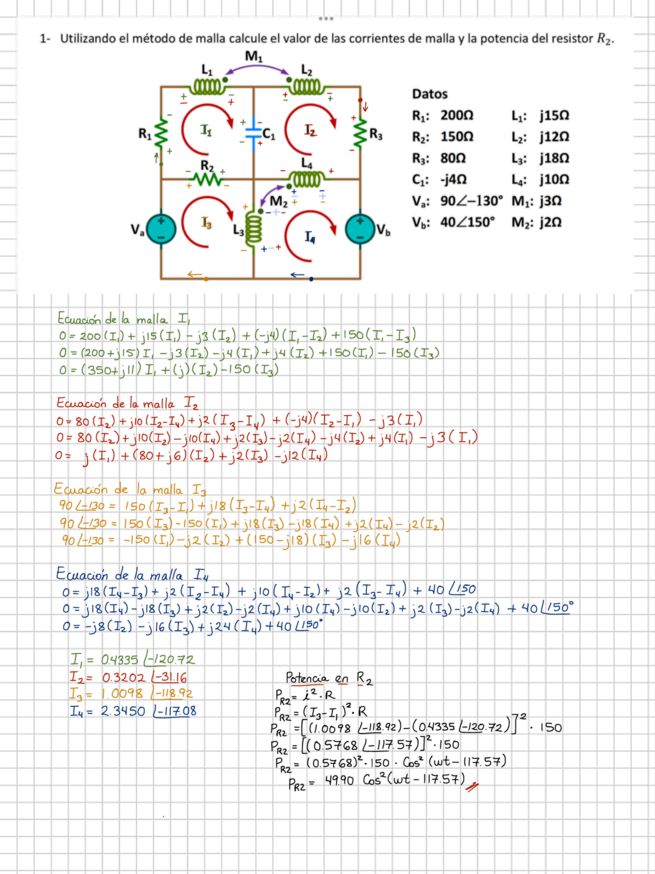 1- Utilizando el método de malla calcule el valor de las corrientes de malla y la potencia del resistor R₂.
M₁
L₁
L₂
R₁
I₁
C₁
I₂
R₃
R₂
L₄
M₂
Vₐ
I₃
L₃
I₄
V_b
Datos
R₁: 200Ω L₁: j15Ω
R₂: 150Ω L₂: j12Ω
R₃: 80Ω L₃: j18Ω
C₁: -j4Ω L₄: j10Ω
Vₐ: 90∠−130° M₁: j3Ω
V_b: 40∠150° M₂: j2Ω
Ecuación de la malla I₁
0 = 200(I₁) + j15(I₁) - j3(I₂) + (-j4)(I₁-I₂) + 150(I₁-I₃)
0 = (200+j15)I₁ - j3(I₂) - j4(I₁) + j4(I₂) + 150(I₁) - 150(I₃)
0 = (350+j11)I₁ + (j)(I₂) - 150(I₃)
Ecuación de la malla I₂
0 = 80(I₂) + j10(I₂-I₄) + j2(I₃-I₄) + (-j4)(I₂-I₁) - j3(I₁)
0 = 80(I₂) + j10(I₂) - j10(I₄) + j2(I₃) - j2(I₄) - j4(I₂) + j4(I₁) - j3(I₁)
0 = j(I₁) + (80+j6)(I₂) + j2(I₃) - j12(I₄)
Ecuación de la malla I₃
90∠-130 = 150(I₃-I₁) + j18(I₃-I₄) + j2(I₄-I₂)
90∠-130 = 150(I₃) - 150(I₁) + j18(I₃) - j18(I₄) + j2(I₄) - j2(I₂)
90∠-130 = -150(I₁) - j2(I₂) + (150-j18)(I₃) - j16(I₄)
Ecuación de la malla I₄
0 = j18(I₄-I₃) + j2(I₂-I₄) + j10(I₄-I₂) + j2(I₃-I₄) + 40∠150
0 = j18(I₄) - j18(I₃) + j2(I₂) - j2(I₄) + j10(I₄) - j10(I₂) + j2(I₃) - j2(I₄) + 40∠150°
0 = -j8(I₂) - j16(I₃) + j24(I₄) + 40∠150°
I₁ = 0.4335∠-120.72
I₂ = 0.3202∠-31.16
I₃ = 1.0098∠-118.92
I₄ = 2.3450∠-117.08
Potencia en R₂
P_R2 = i²·R
P_R2 = (I₃-I₁)²·R
P_R2 = [(1.0098∠-118.92)-(0.4335∠-120.72)]²·150
P_R2 = [(0.5768∠-117.57)]²·150
P_R2 = (0.5768)²·150·Cos²(wt-117.57)
P_R2 = 49.90 Cos²(wt-117.57)